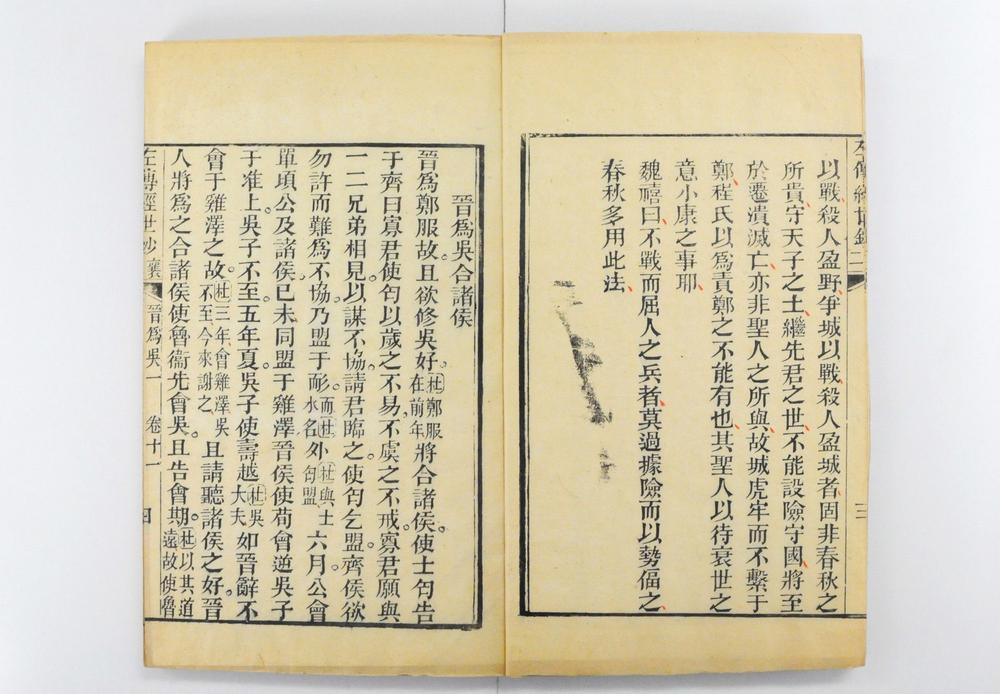 以戰殺人盈野爭城以戰殺人盈城者固非春秋之
所貴守天子之土繼先君之世不能設險守國將至
於遷潰滅亡亦非聖人之所與故城虎牢而不繫于
鄭程氏以為責鄭之不能有也其聖人以待衰世之
意小康之事耶
魏禧曰不戰而屈人之兵者莫過據險而以勢偪之
春秋多用此法
晉為吳合諸侯
晉為鄭服故且欲修吳好杜鄭服在前年將合諸侯使士匄告
于齊曰寡君使匄以歲之不易不虞之不戒寡君願與
一二兄弟相見以謀不協請君臨之使匄乞盟齊侯欲
勿許而難為不協乃盟于耏而杜水名外杜與士匄盟六月公會
單頃公及諸侯己未同盟于雞澤晉侯使荀會逆吳子
于淮上吳子不至五年夏吳子使壽越杜吳大夫如晉辭不
會于雞澤之故杜三年會雞澤吳不至今來謝之且請聽諸侯之好晉
人將為之合諸侯使魯衞先會吳且告會期杜以其道遠故使魯
左傳經世鈔襄
晉為吳一
卷十一
四